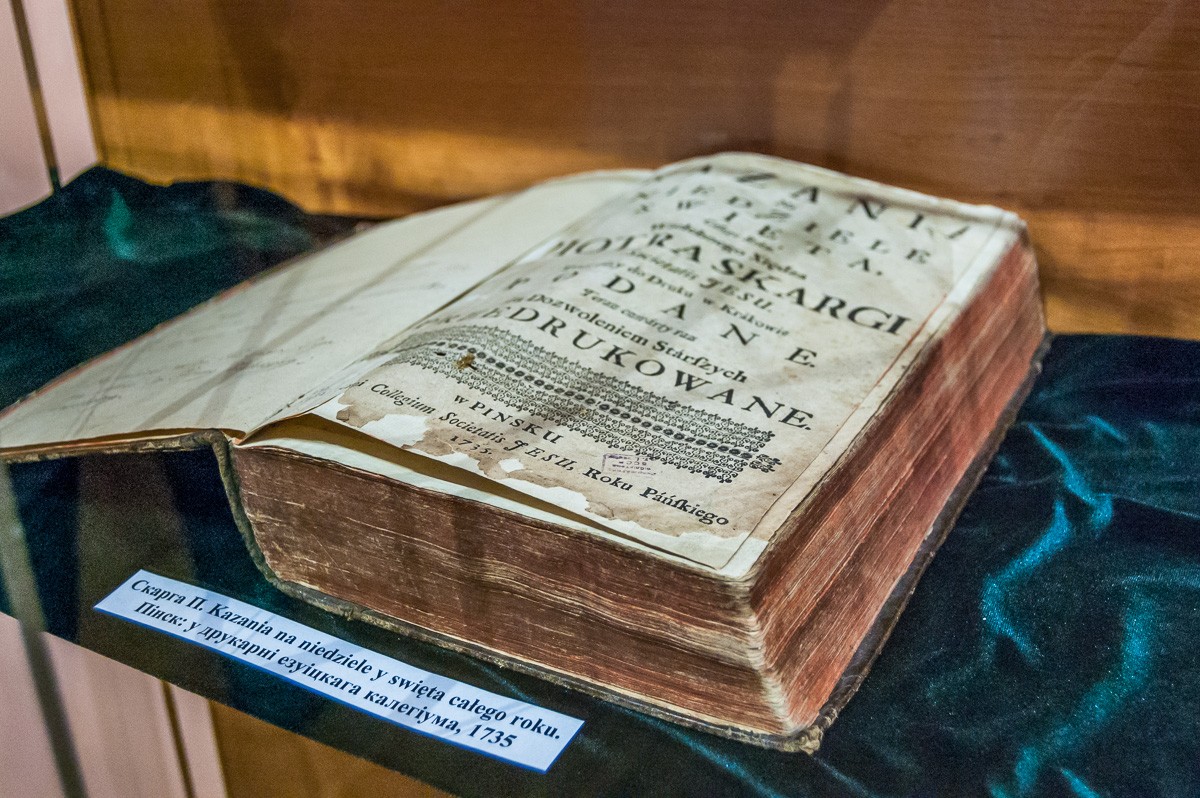 AZANIA
IEDZIELE
SWIETA,
całego Roku.
Wielebnego Xiędza
PIOTRA SKARGI
Societatis JESU.
do Druku w Krákowie
PODANE.
Teraz czwárty raz
Dozwoleniem Stárſzych
EDRUKOWANE.
w PINSKU
Collegium Societatis JESU, Roku Páńſkiego
1735.
Скарга П. Kazania na niedziele y swięta całego roku.
Пінск: у друкарні езуіцкага калегіума, 1735